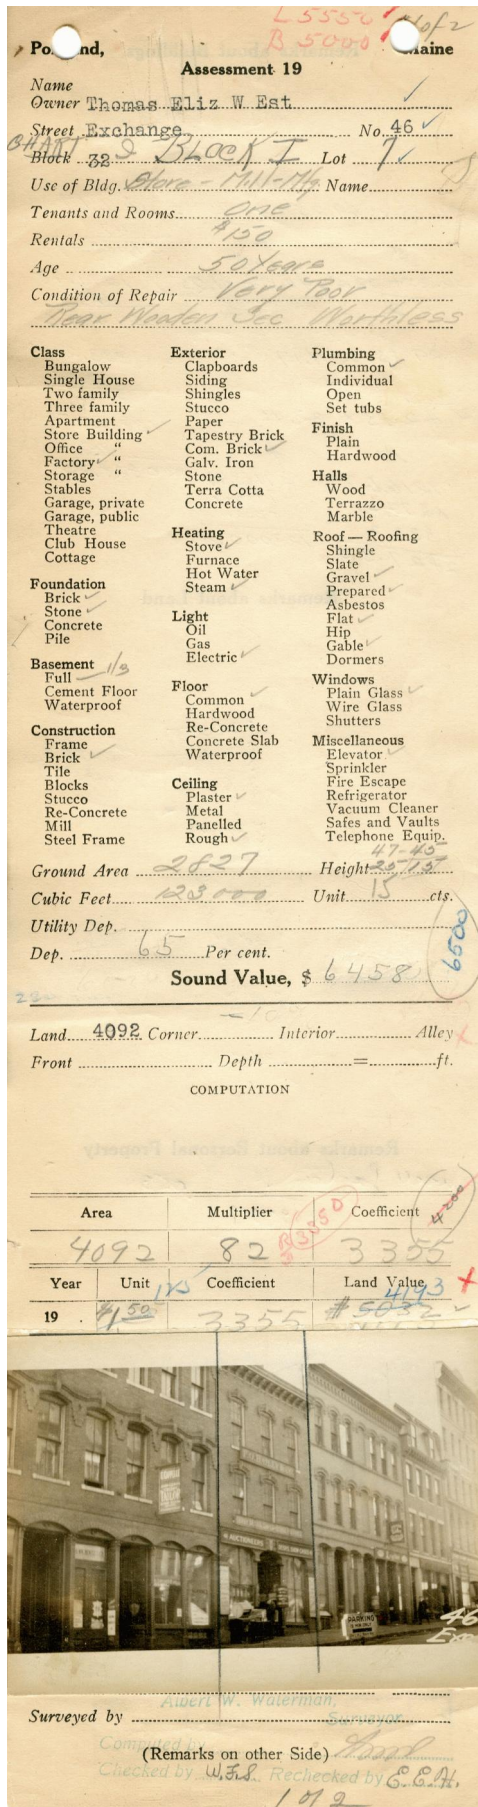 L 5550
B 5000
1 of 2
Portland, Maine
Assessment 19
Name
Owner Thomas Eliz W Est
Street Exchange No. 46
CHART & BLOCK I
Block 32 Lot 7
Use of Bldg. Store - Mill-Mfg. Name
Tenants and Rooms one
Rentals $150
Age 50 Years
Condition of Repair Very Poor
Rear Wooden Sec Worthless
Class
Bungalow
Single House
Two family
Three family
Apartment
Store Building ✓
Office "
Factory ✓ "
Storage "
Stables
Garage, private
Garage, public
Theatre
Club House
Cottage
Foundation
Brick ✓
Stone ✓
Concrete
Pile
Basement 1/3
Full
Cement Floor
Waterproof
Construction
Frame
Brick ✓
Tile
Blocks
Stucco
Re-Concrete
Mill
Steel Frame
Exterior
Clapboards
Siding
Shingles
Stucco
Paper
Tapestry Brick
Com. Brick ✓
Galv. Iron
Stone
Terra Cotta
Concrete
Heating
Stove ✓
Furnace
Hot Water
Steam ✓
Light
Oil
Gas
Electric ✓
Floor
Common ✓
Hardwood
Re-Concrete
Concrete Slab
Waterproof
Ceiling
Plaster ✓
Metal
Panelled
Rough ✓
Plumbing
Common ✓
Individual
Open
Set tubs
Finish
Plain
Hardwood
Halls
Wood
Terrazzo
Marble
Roof — Roofing
Shingle
Slate
Gravel ✓
Prepared ✓
Asbestos
Flat ✓
Hip
Gable ✓
Dormers
Windows
Plain Glass ✓
Wire Glass
Shutters
Miscellaneous
Elevator ✓
Sprinkler
Fire Escape
Refrigerator
Vacuum Cleaner
Safes and Vaults
Telephone Equip.
47-45
Ground Area 2827 Height 25/15
Cubic Feet 123000 Unit 15 cts.
Utility Dep.
Dep. 65 Per cent.
6500
Sound Value, $ 6458
Land 4092 Corner Interior Alley
Front Depth = ft.
COMPUTATION
Area Multiplier Coefficient
3350
4200
4092 82 3355
Year Unit Coefficient Land Value
125 4193
19 $1.50 3355 $ 5032
AUCTIONEERS
PARKING
46
Surveyed by
Albert W. Waterman,
Surveyor
Computed by
(Remarks on other Side)
Checked by W.F.S. Rechecked by E.E.H.
1 of 2